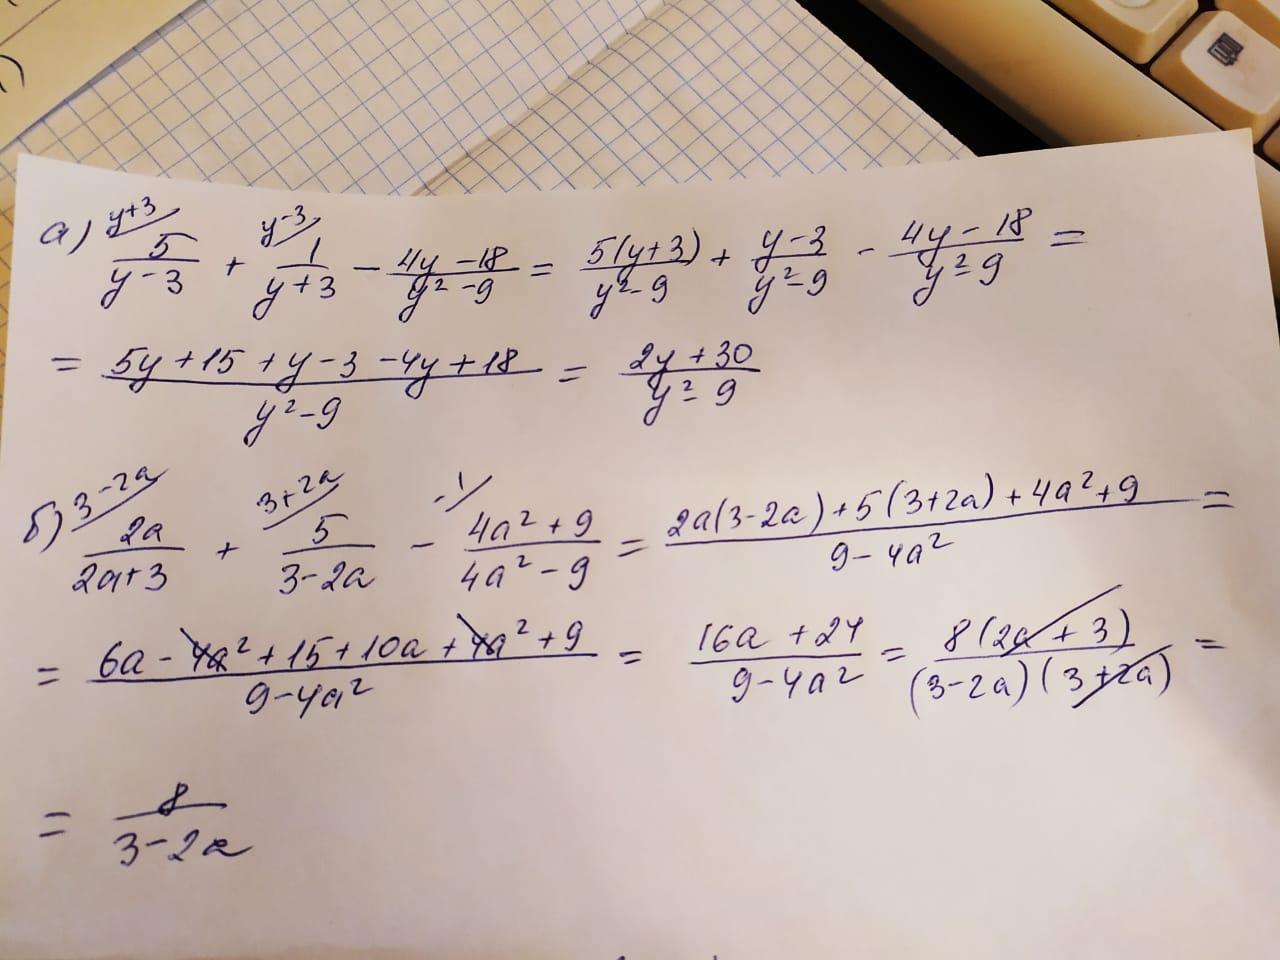 а) 5/(y-3) (y+3 + 1/(y+3) (y-3 - (4y-18)/(y²-9) = 5(y+3)/(y²-9) + (y-3)/(y²-9) - (4y-18)/(y²-9) =
= (5y+15+y-3-4y+18)/(y²-9) = (2y+30)/(y²-9)
б) 2a/(2a+3) (3-2a + 5/(3-2a) (3+2a - (4a²+9)/(4a²-9) (-1 = (2a(3-2a)+5(3+2a)+4a²+9)/(9-4a²) =
= (6a-4a²+15+10a+4a²+9)/(9-4a²) = (16a+24)/(9-4a²) = 8(2a+3)/((3-2a)(3+2a)) =
= 8/(3-2a)